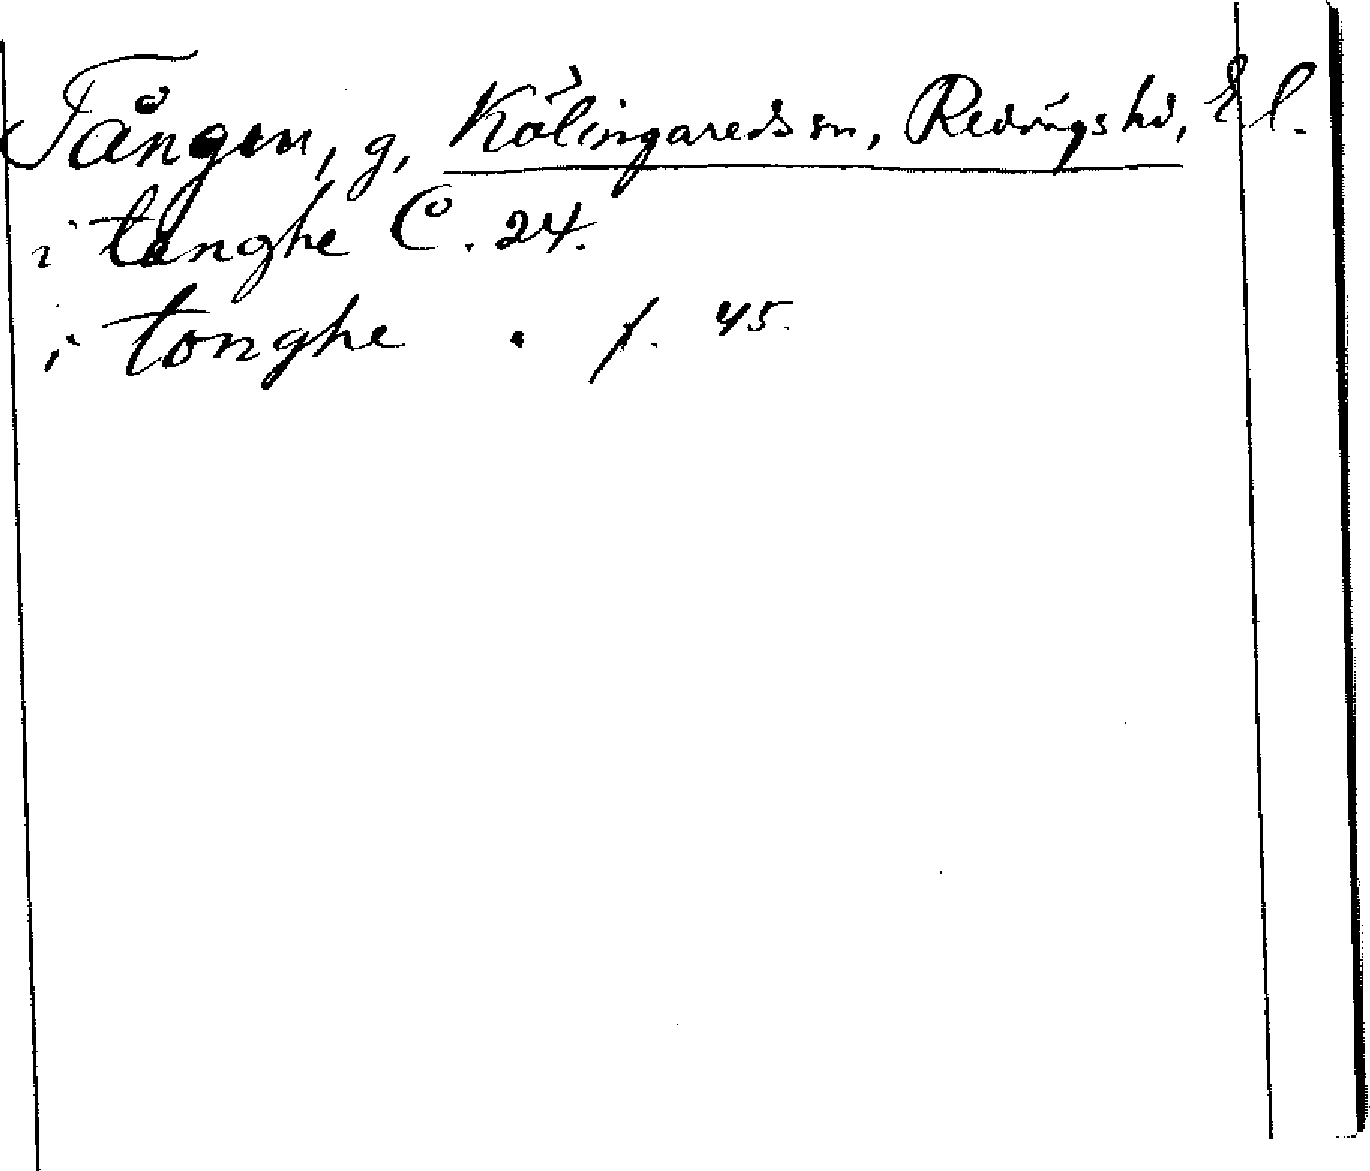 Tången, g, Kölingareds sn, Redvägs hd, Äl.
i tanghe C. 24.
i tonghe . f. 45.